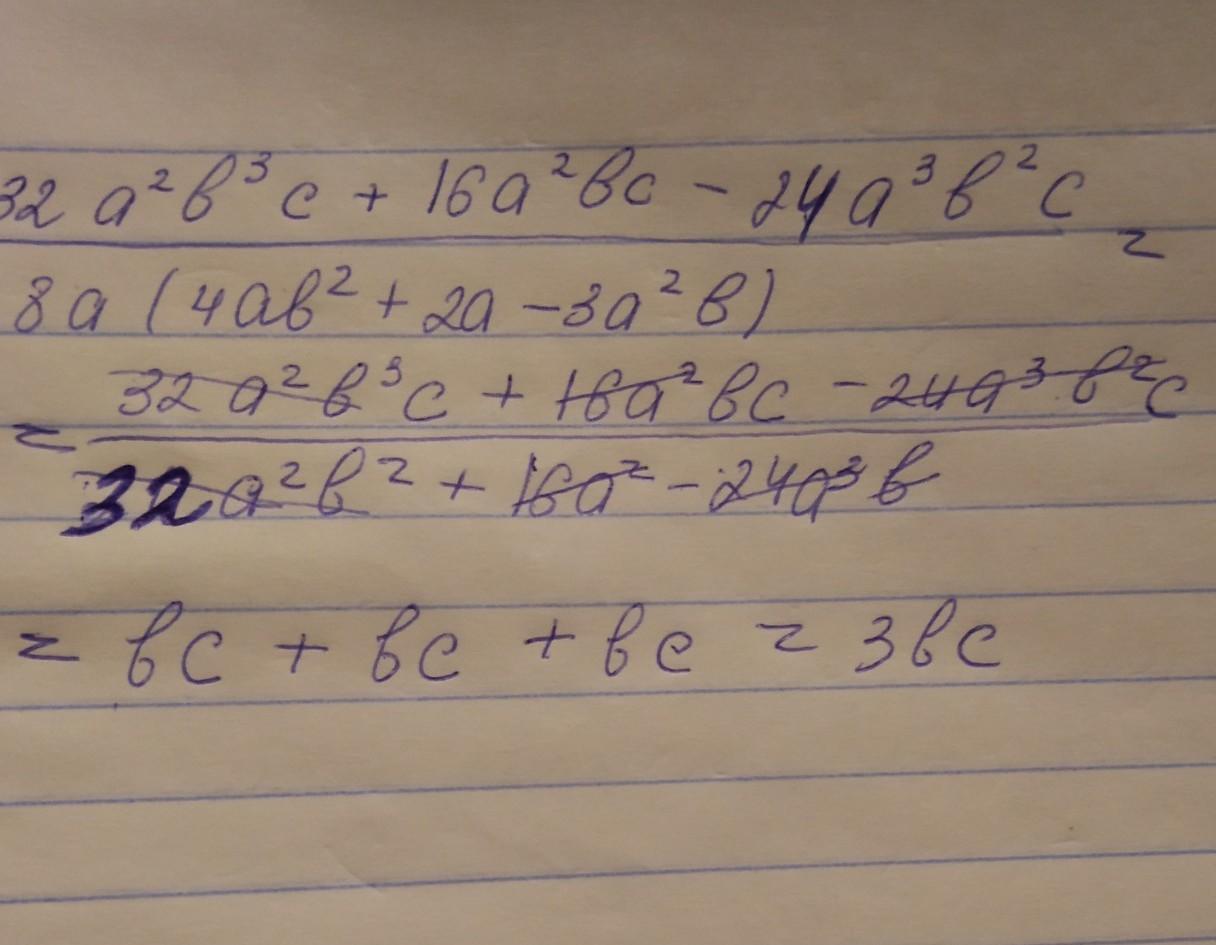 32 a²b³c + 16a²bc - 24a³b²c =
8a (4ab² + 2a - 3a²b)
= 32a²b³c + 16a²bc - 24a³b²c
32a²b² + 16a² - 24a³b
= bc + bc + bc = 3bc